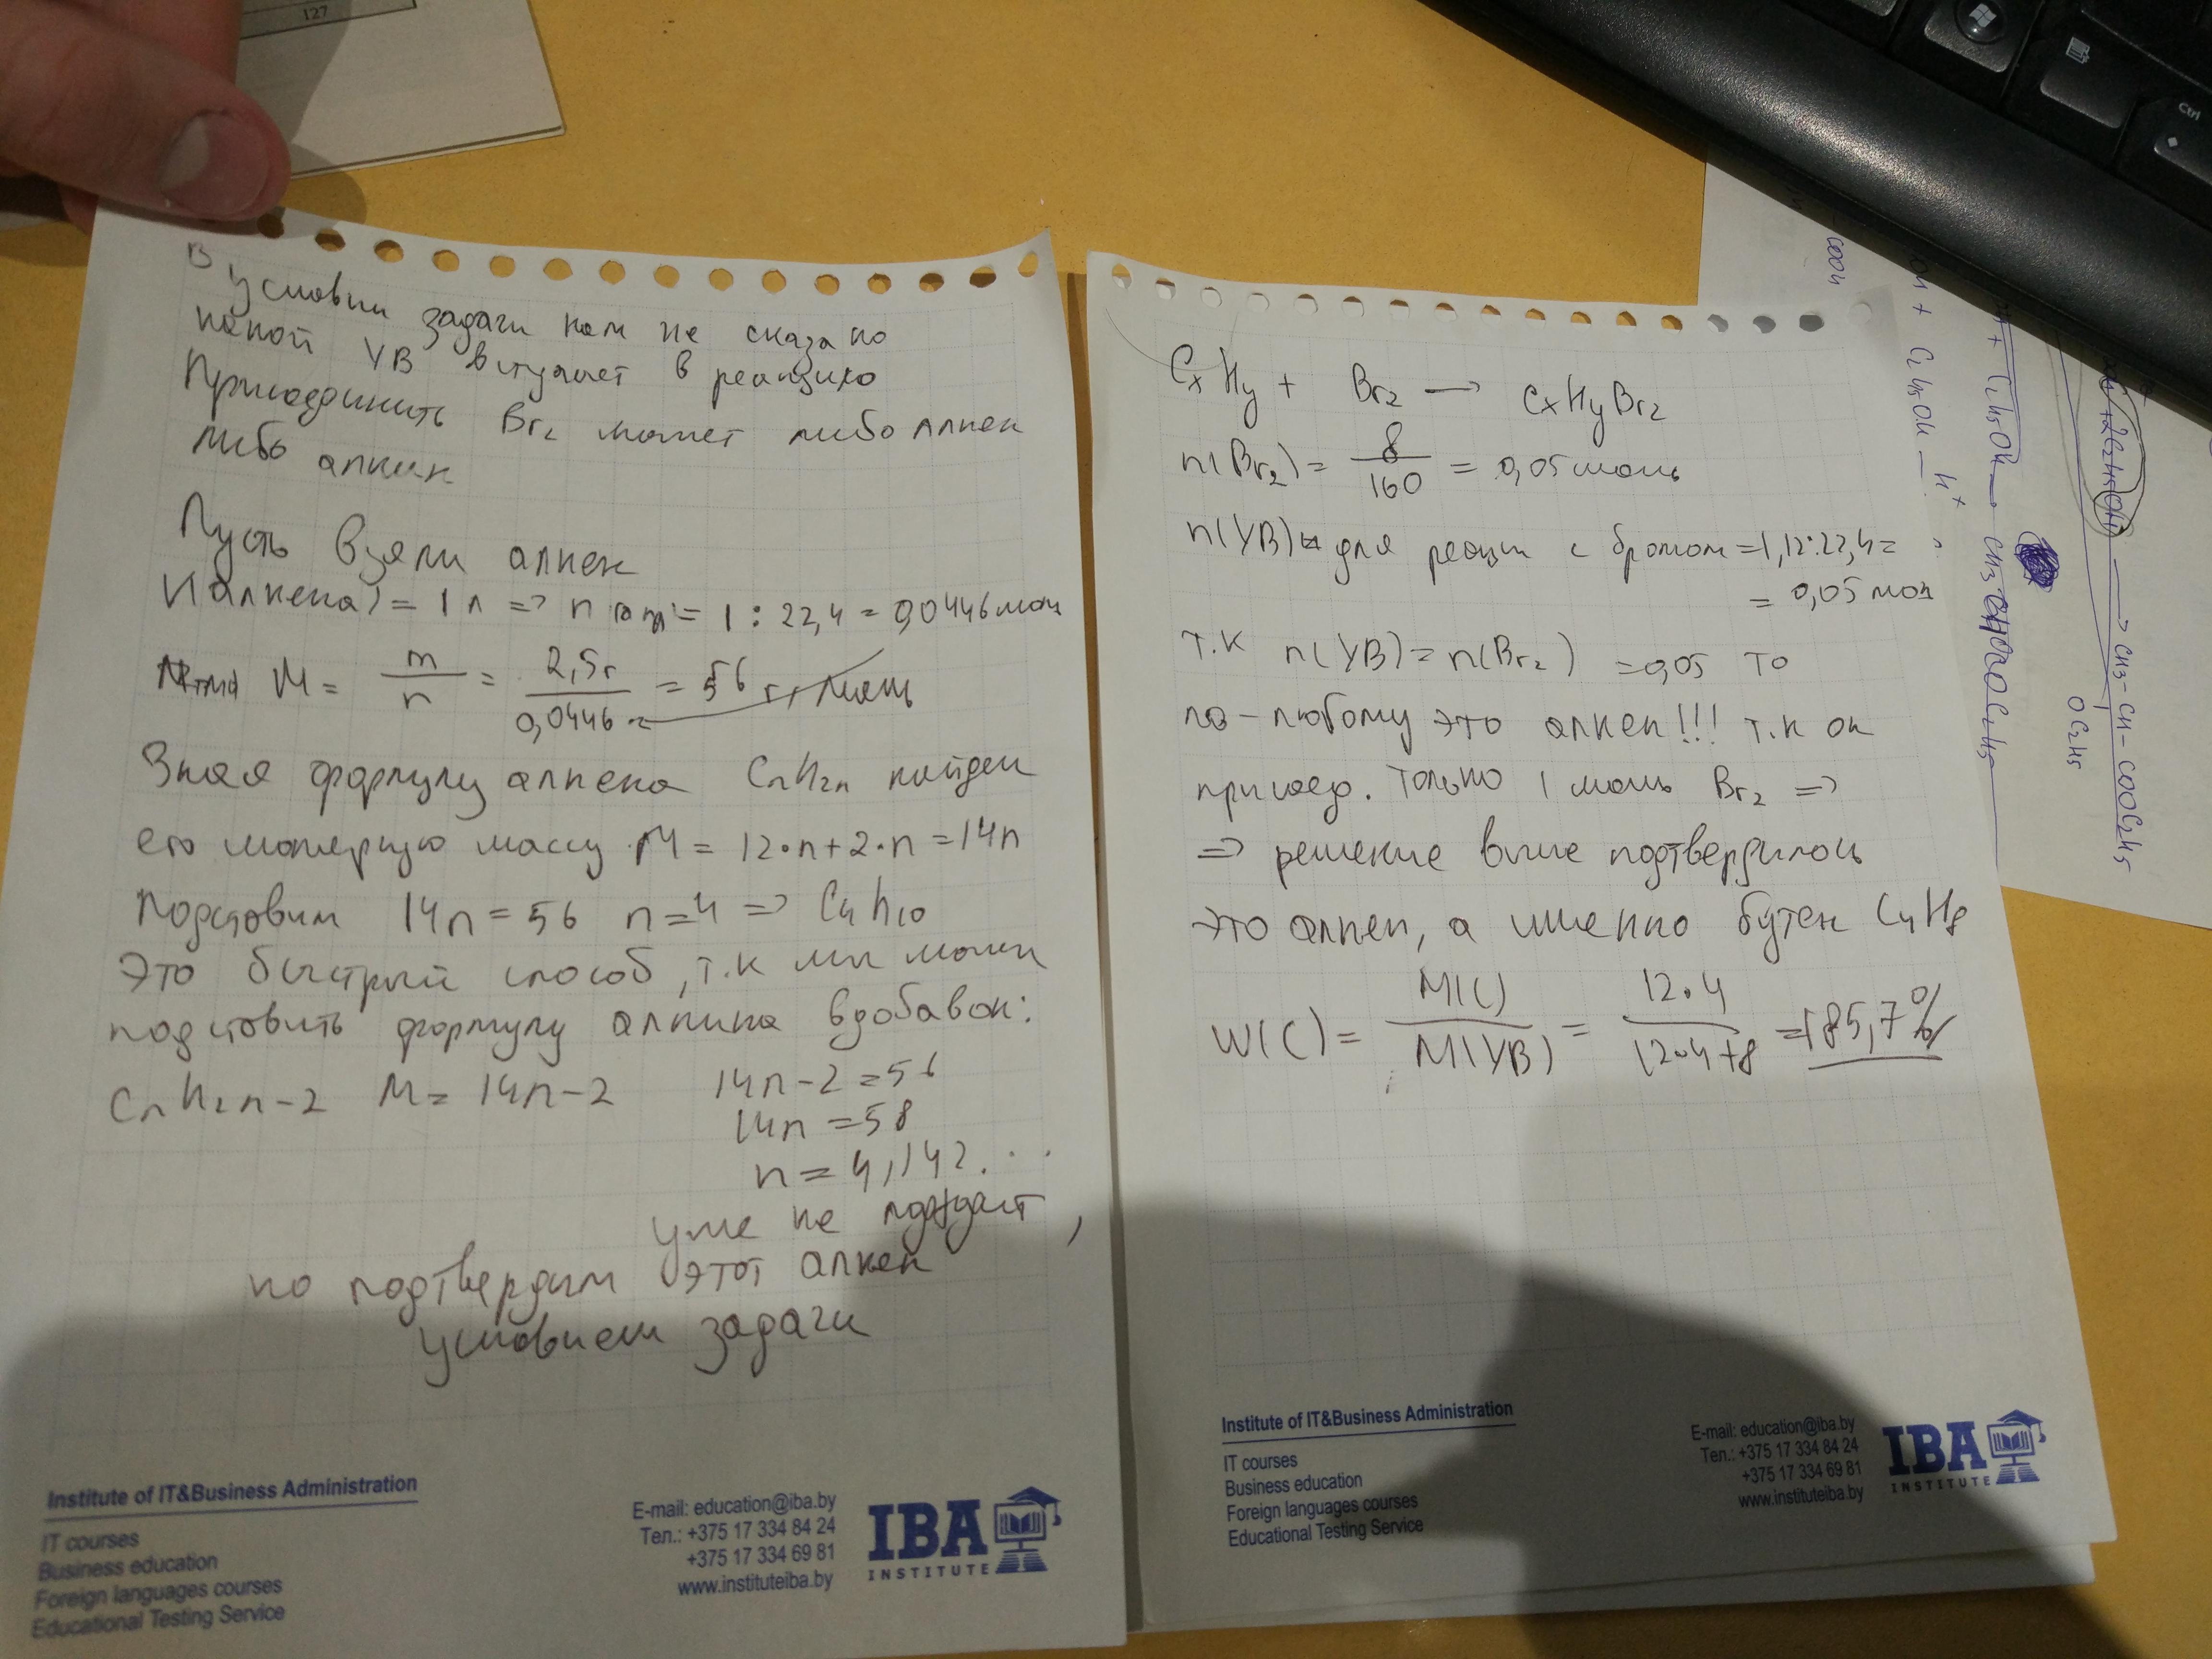 127
В условии задачи нам не сказано
какой УВ вступает в реакцию
Присоединить Br2 может либо алкен
либо алкин
Пусть взяли алкен
V(алкена) = 1 л => n = 1 : 22,4 = 0,0446 моль
M = m/n = 2,5г/0,0446 = 56 г/моль
Зная формулу алкена CnH2n найдем
его молярную массу M = 12•n+2•n = 14n
Подставим 14n = 56 n = 4 => C4H10
Это быстрый способ, т.к мы можем
подставить формулу алкина вдобавок:
CnH2n-2 M = 14n-2 14n-2 = 56
14n = 58
n = 4,142...
уже не подходит,
но подтвердим этот алкен
условием задачи
Institute of IT&Business Administration
IT courses
Business education
Foreign languages courses
Educational Testing Service
E-mail: education@iba.by
Тел.: +375 17 334 84 24
+375 17 334 69 81
www.instituteiba.by
IBA
INSTITUTE
CxHy + Br2 → CxHyBr2
n(Br2) = 8/160 = 0,05 моль
n(УВ) для реакции с бромом = 1,12:22,4 =
= 0,05 мол
т.к n(УВ) = n(Br2) = 0,05 то
по-любому это алкен!!! т.к он
присоед. только 1 моль Br2 =>
=> решение выше подтвердилось
это алкен, а именно бутен C4H8
W(C) = M(C)/M(УВ) = 12•4/12•4+8 = 85,7%
Institute of IT&Business Administration
IT courses
Business education
Foreign languages courses
Educational Testing Service
E-mail: education@iba.by
Тел.: +375 17 334 84 24
+375 17 334 69 81
www.instituteiba.by
IBA
INSTITUTE
Ctrl
COOH
+ C2H5OH — H+
+ C2H5OH →
→ CH3-CH-COOC2H5
OC2H5